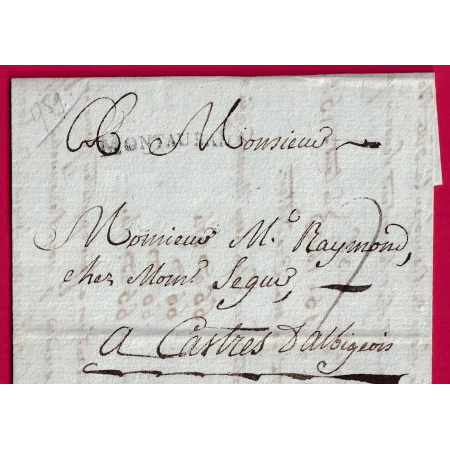 1789
A Monsieur
MONTAUBAN
Monsieur Mc. Raymond,
chez Monsr. Segui,
7
a Castres D'albigeois